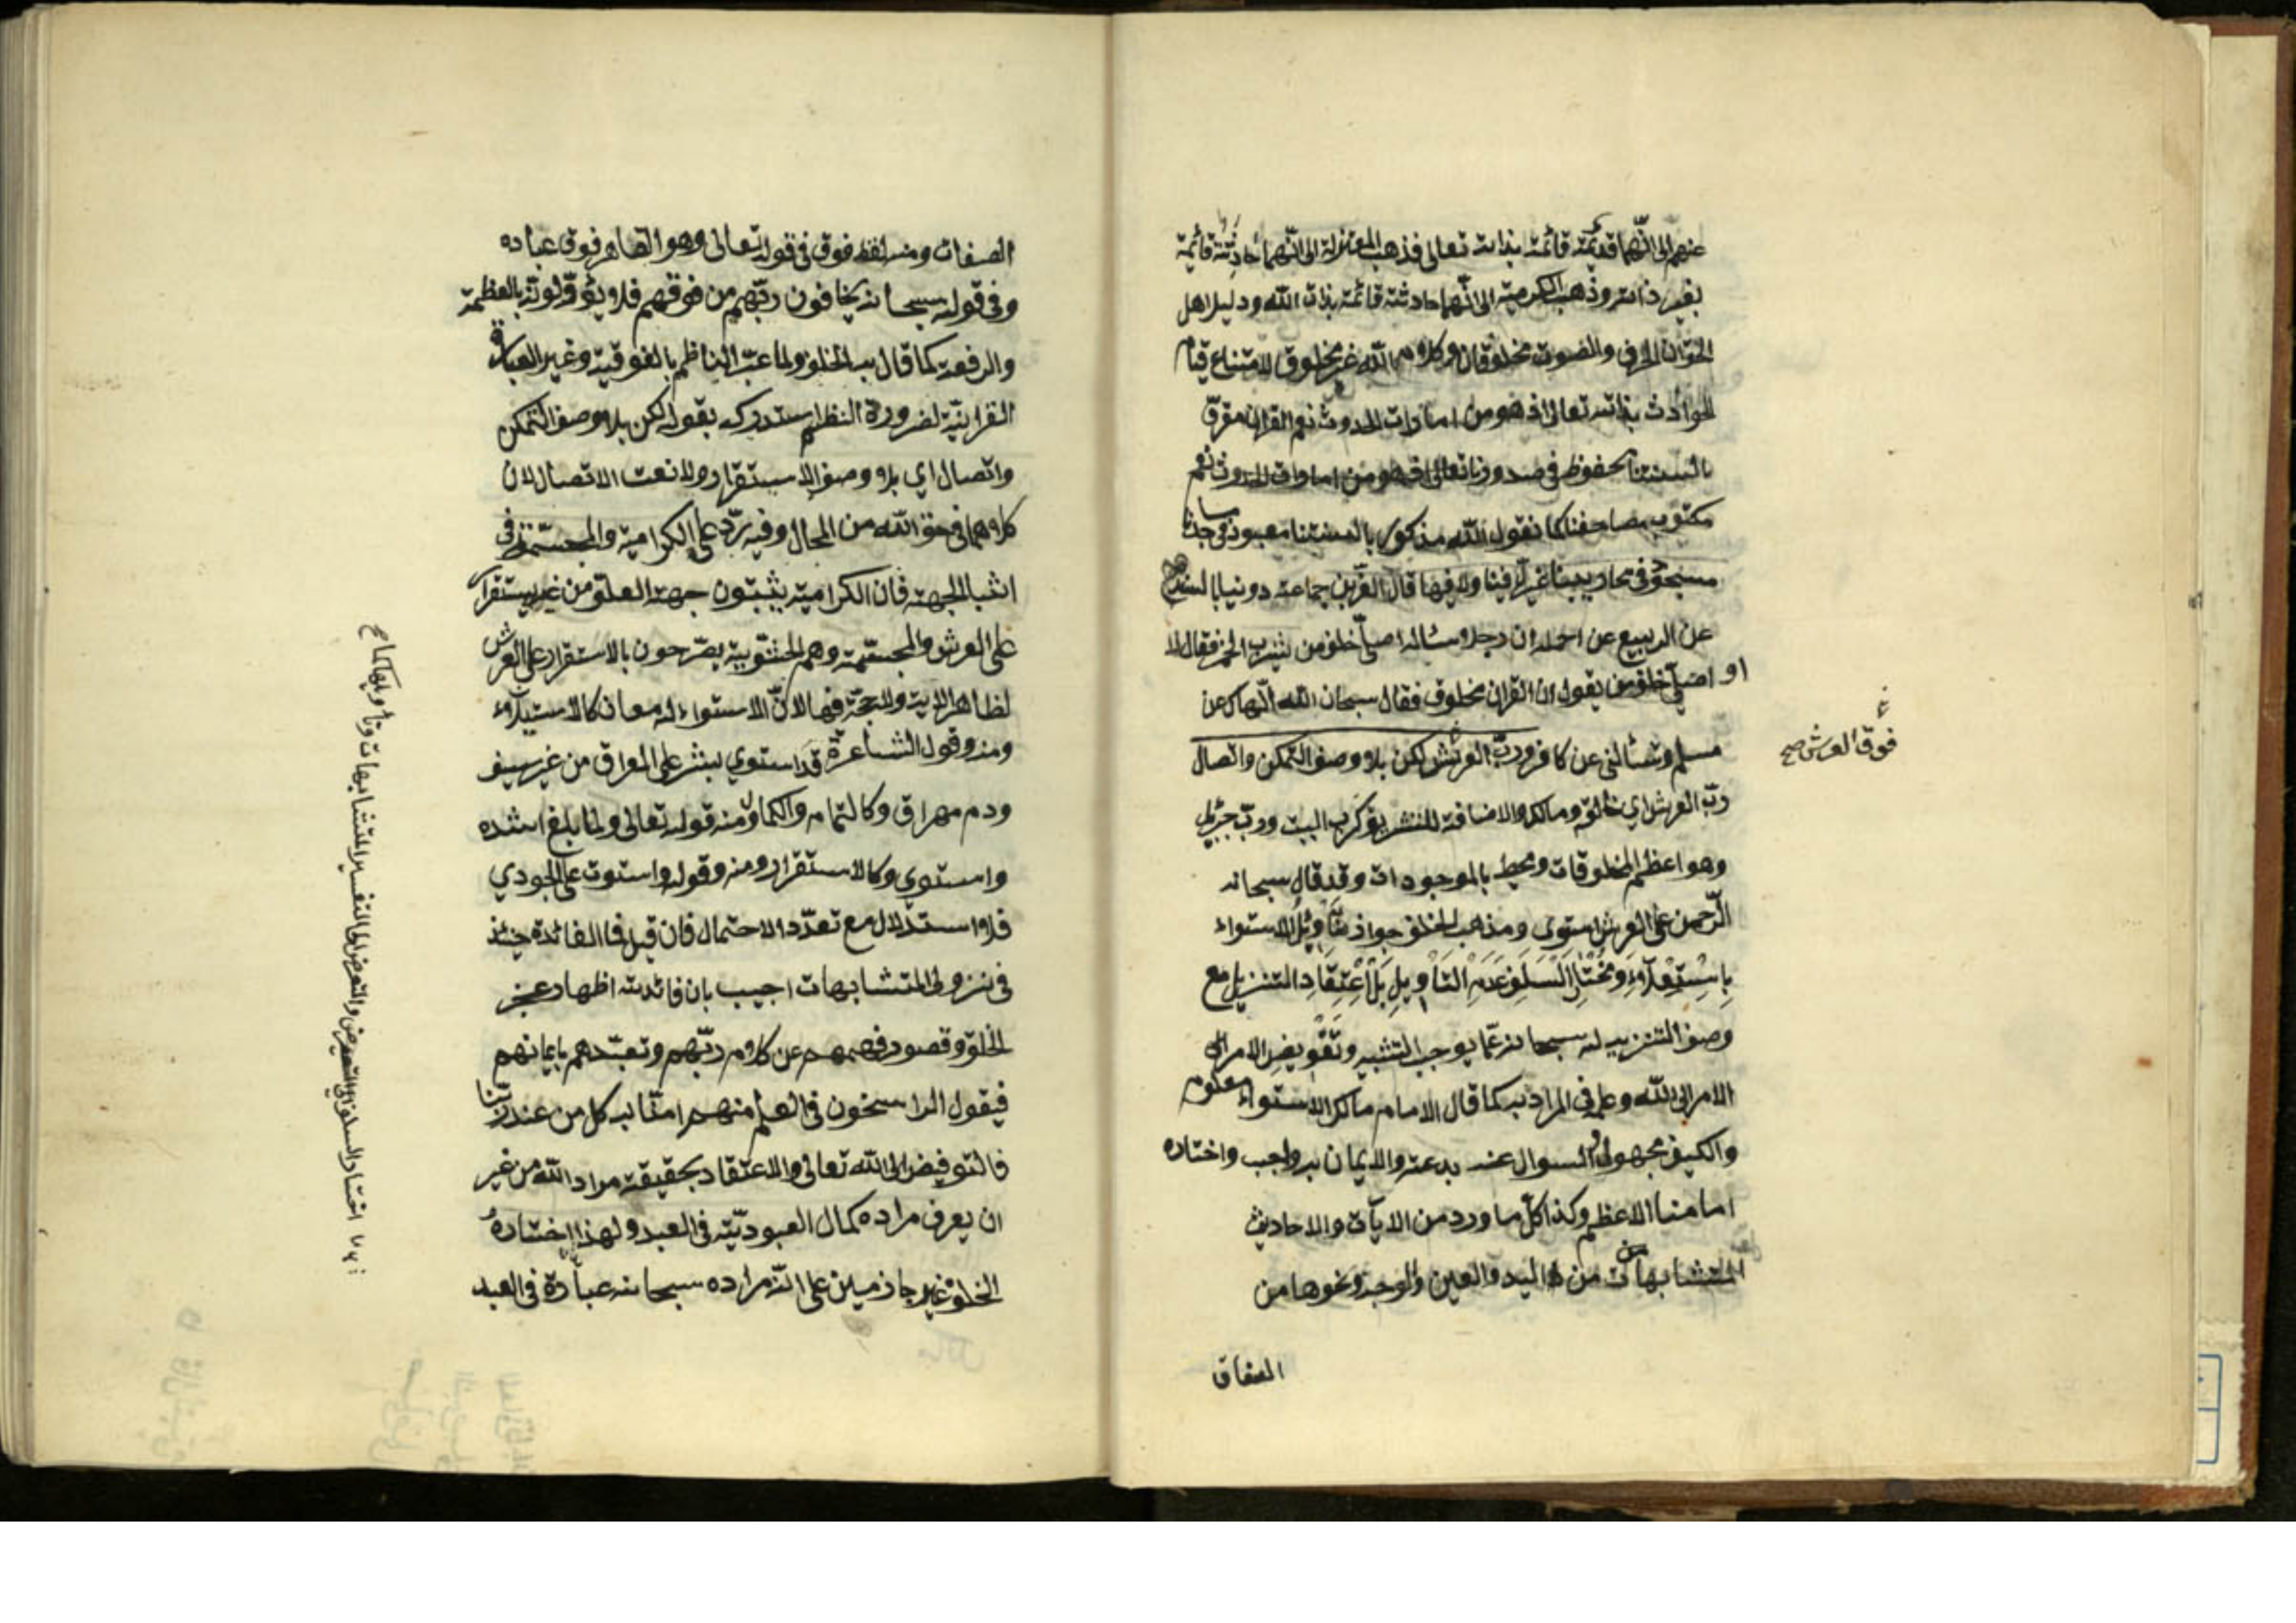 عنهم الى انّهما قديمة قائمة بذاته تعالى فذهب المعتزلة الى انّهما حادثة قائمة
بغير ذاته وذهب الكرمية الى انّهما حادثة قائمة بذات الله ودليل اهل
الحق ان الحرف والصوت مخلوقان وكلام الله غير مخلوق لامتناع قيام
الحوادث بذاته تعالى اذ هو من امارات الحدوث نعم القران مقرؤ
بالسنتنا محفوظ في صدورنا تعالى اذ هو من امارات الحدوث نعم
مكتوب بمصاحفنا كما نقول الله مذكور بالسنتنا معبود في مساجدنا
مسبحو في محاريبنا غير فينا ولا فيها قال العز بن جماعة روينا بالسند
عن الربيع عن احمد ان رجلا ساله اصلّي خلف من يشرب الخمر فقال لا
او اصلّي خلف من يقول ان القران مخلوق فقال سبحان الله انهاك عن
مسلم وتسألني عن كافر وربّ العرش لكن بلا وصف التمكن واتصال
فوق العرش صح
ربّ العرش اي خالقه ومالكه والاضافة للتشريف كرب البيت وربّ جبريل
وهو اعظم المخلوقات ومحيط بالموجودات وقد قال سبحانه
الرّحمن على العرش استوى ومذهب الخلف جواز تأويل الاستواء
باستيلاء ومختار السلف عدم التأويل بل اعتقاد التنزيل مع
وصف التنزيه له سبحانه عمّا يوجب التشبيه وتفويض الامر الى
الامر الى الله وعلمه في المراد به كما قال الامام مالك الاستواء معلوم
والكيف مجهول والسوال عنه بدعة والايمان به واجب واختاره
امامنا الاعظم وكذا كل ما ورد من الايات والاحاديث
المتشابهات من اليد والعين والوجه ونحوها من
الصفات
الصفات ومنه لفظ فوق في قوله تعالى وهو القاهر فوق عباده
وفي قوله سبحانه يخافون ربّهم من فوقهم فلا يؤوّلونه بالعظمة
والرفعة كما قال به الخلف ولما عبّ الناظم بالفوقية وغير العبارة
القرانيّة لضرورة النظم استدركه بقوله لكن بلا وصف التمكن
واتصال اي بلا وصف الاستقرار ولا نعت الاتصال لان
كلاهما في حق الله من المحال وفيه ردّ على الكرامية والمجسّمة في
اثبات الجهة فان الكرامية يثبتون جهة العلو من غير استقرار
على العرش والمجسّمة وهم الحشوية يصرّحون بالاستقرار على العرش
لظاهر الاية ولا حجّة فيها لانّ الاستواء له معان كالاستيلاء
ومنه قول الشاعر قد استوى بشر على العراق من غير سيف
ودم مهراق وكالتمام والكمال ومنه قوله تعالى ولمّا بلغ اشده
واستوى وكالاستقرار ومنه وقوله واستوت على الجودي
فلا استدلال مع تعدّد الاحتمال فان قيل فما الفائدة حينئذ
في نزول المتشابهات اجيب بان فائدته اظهار عجز
الخلق وقصور فهمهم عن كلام ربّهم وتعبّدهم بايمانهم
فيقول الراسخون في العلم منهم امنّا به كل من عند ربنا
فالتفويض الى الله تعالى والاعتقاد بحقيقة مراد الله من غير
ان يعرف مراده كمال العبوديّة في العبد ولهذا اختاره
الخلف غير جازمين على انّه مراده سبحانه عبادة في العبد